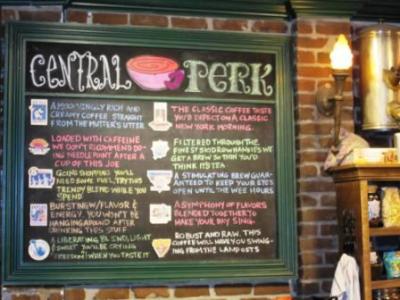 CENTRAL PERK
AMAZINGLY RICH AND
CREAMY COFFEE STRAIGHT
FROM THE MUTTER'S UTTER
LOADED WITH CAFFEINE
WE DON'T RECOMMEND DO-
ING NEEDLEPOINT AFTER A
CUP OF THIS JOE
GOING SHOPPING? YOU'LL
NEED SOME FUEL, TRY THIS
TRENDY BLEND WHILE YOU
SPEND
BURSTING W/FLAVOR &
ENERGY. YOU WON'T BE
HANGING AROUND AFTER
DRINKING THIS STUFF
A LIBERATING BLEND, LIGHT
& SWEET YOU'LL BE CRYING
FREEDOM! WHEN YOU TASTE IT
THE CLASSIC COFFEE TASTE
YOU'D EXPECT ON A CLASSIC
NEW YORK MORNING.
FILTERED THROUGH THE
SKIDROW HAMPTS WE
GET A BREW SO THIN YOU'D
THINK IT'S TEA
A STIMULATING BREW GUAR-
ANTEED TO KEEP YOUR EYES
OPEN UNTIL THE WEE HOURS
A SYMPHONY OF FLAVORS
BLENDED TOGETHER TO
MAKE YOUR DAY SING.
ROBUST AND RAW. THIS
COFFEE WILL HAVE YOU SWING-
ING FROM THE LAMP POSTS